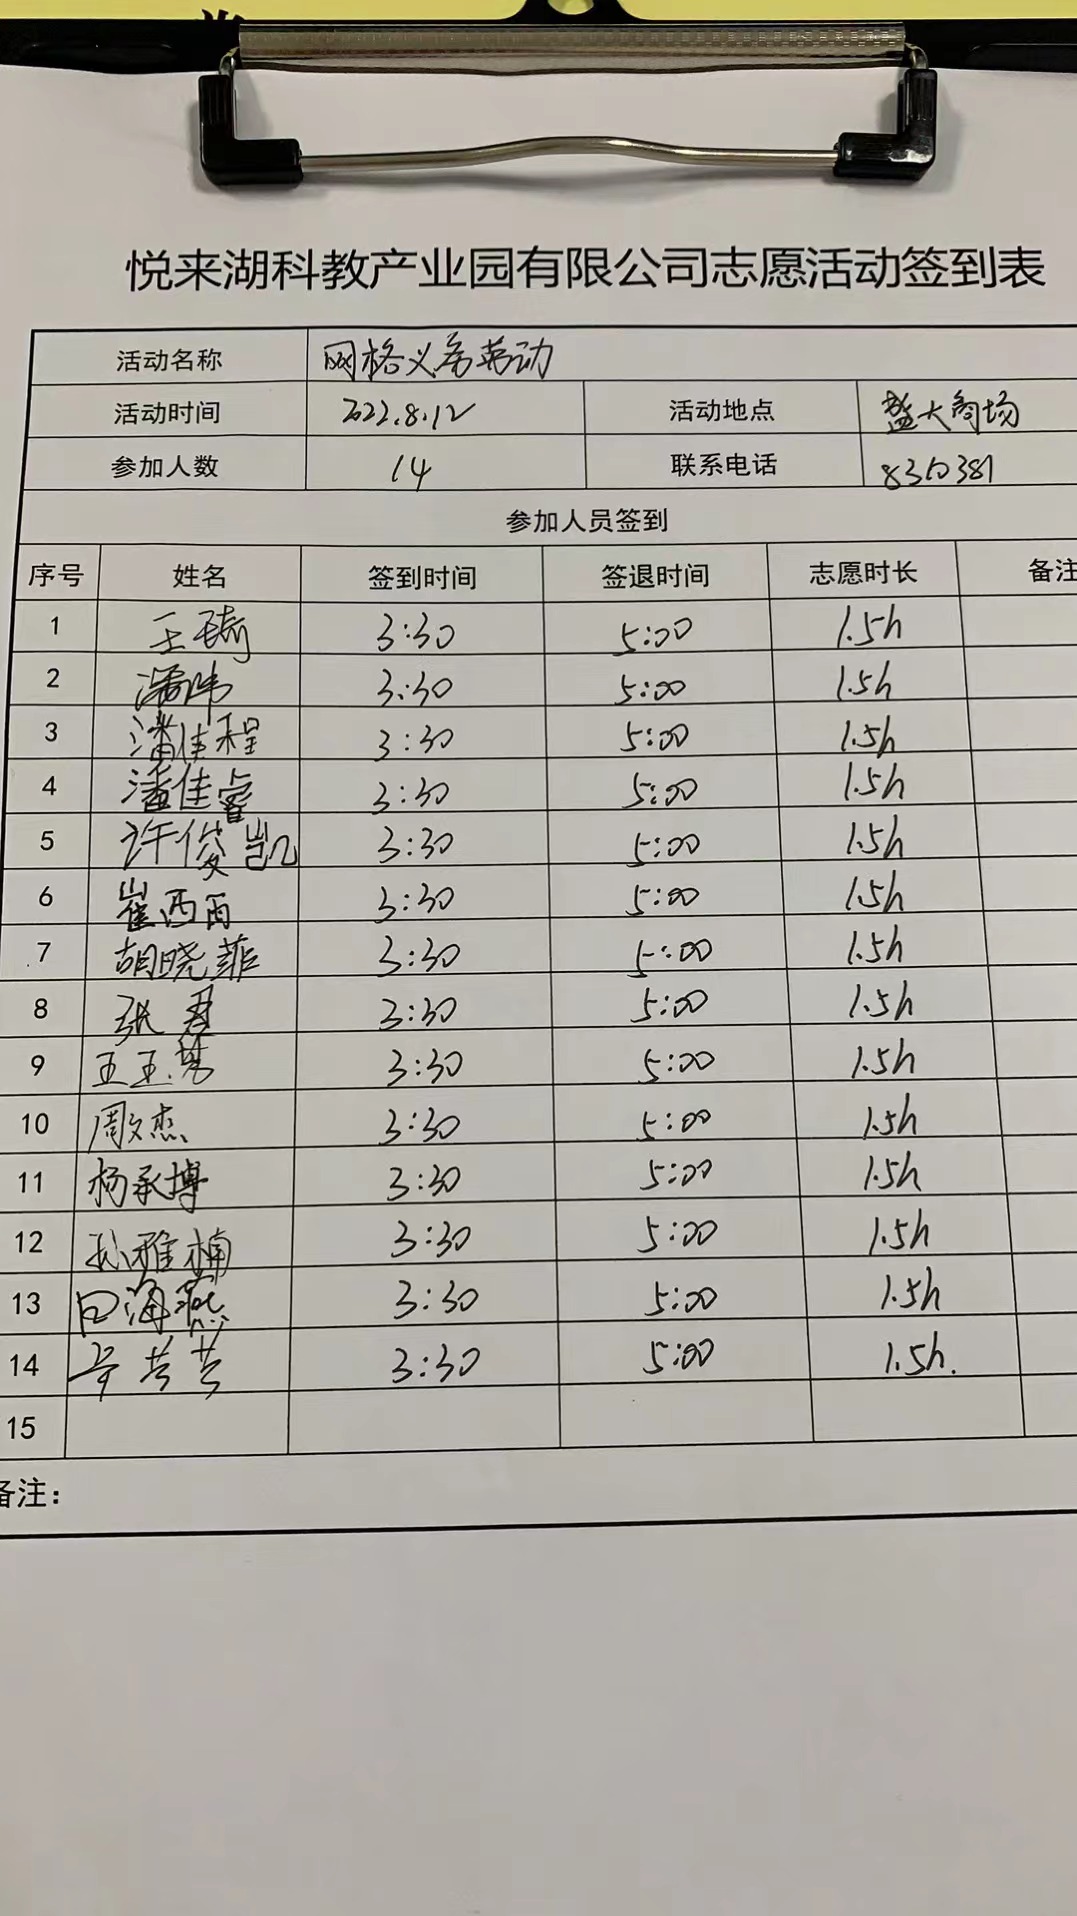 悦来湖科教产业园有限公司志愿活动签到表
活动名称 网格义务劳动
活动时间 2022.8.12 活动地点 盛大商场
参加人数 14 联系电话
参加人员签到
序号 姓名 签到时间 签退时间 志愿时长 备注
1 王琦 3:30 5:00 1.5h
2 潘伟 3:30 5:00 1.5h
3 潘佳程 3:30 5:00 1.5h
4 潘佳睿 3:30 5:00 1.5h
5 许俊凯 3:30 5:00 1.5h
6 崔西雨 3:30 5:00 1.5h
7 胡晓菲 3:30 5:00 1.5h
8 张君 3:30 5:00 1.5h
9 3:30 5:00 1.5h
10 周文杰 3:30 5:00 1.5h
11 杨承博 3:30 5:00 1.5h
12 孙雅楠 3:30 5:00 1.5h
13 白海燕 3:30 5:00 1.5h
14 辛芳芳 3:30 5:00 1.5h.
15
备注：